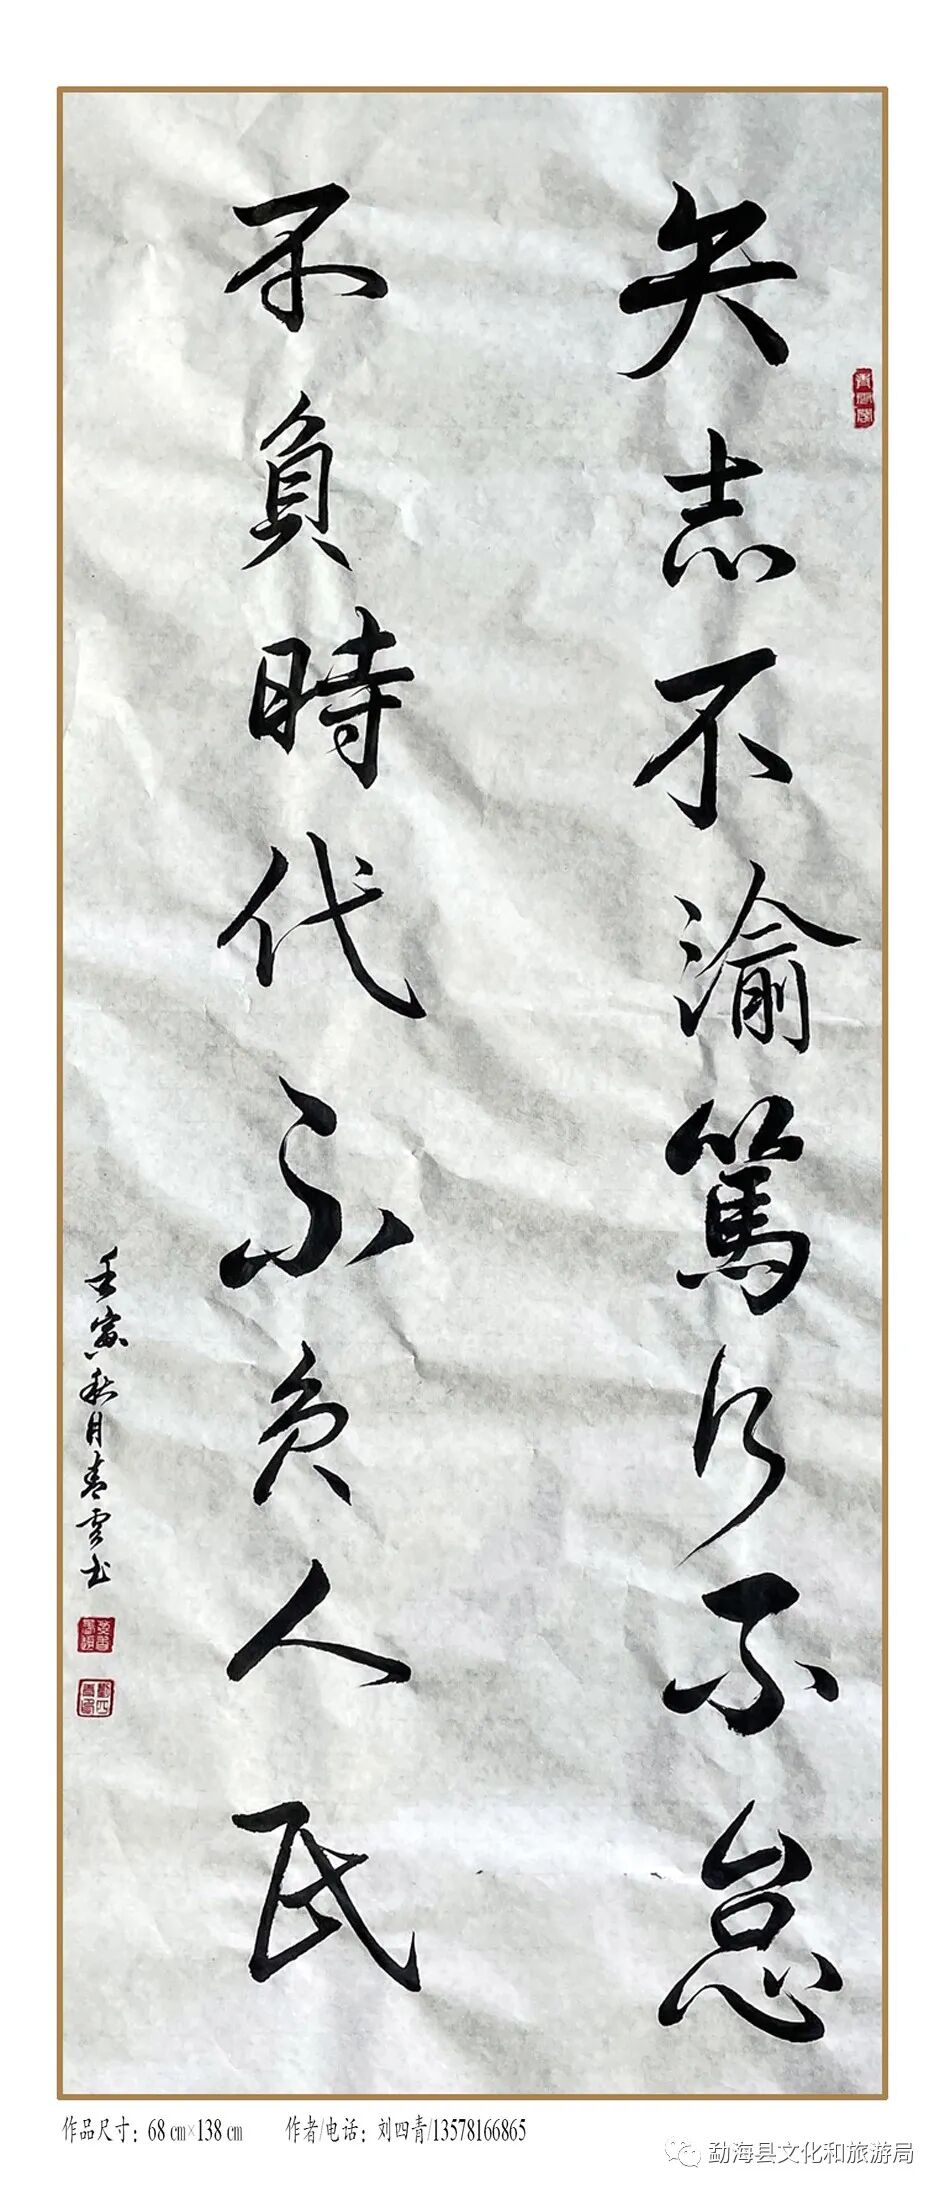 矢志不渝篤行不怠
不負時代不負人民
壬寅秋月青雲书
作品尺寸：68 cm×138 cm 作者/电话：刘四青/13578166865
勐海县文化和旅游局